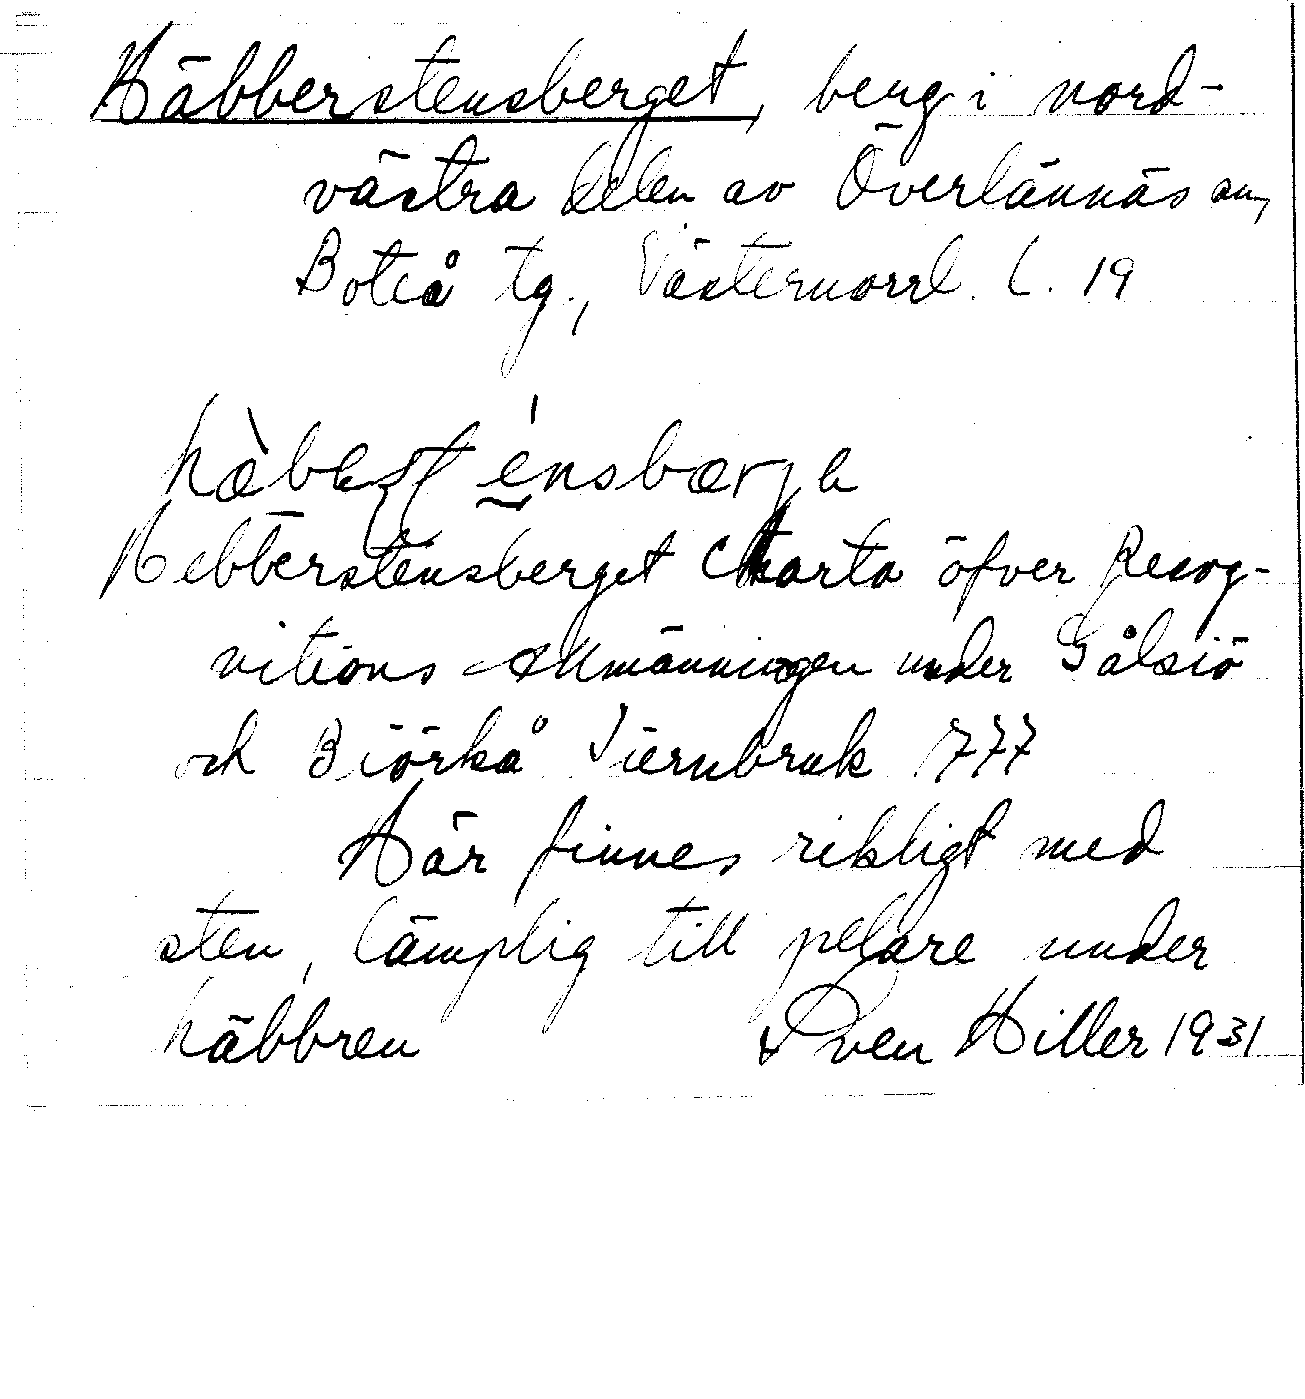 Häbberstensberget, berg i nord-
västra delen av Överlännäs sn,
Boteå tg., Västernorrl. l. 19
Hebberstensberget Charta öfver Recog-
nitions Allmänningen under Gålsiö
och Biörkå Jernbruk 1777
Här finnes rikligt med
sten, lämplig till pelare under
häbbren Sven Hiller 1931